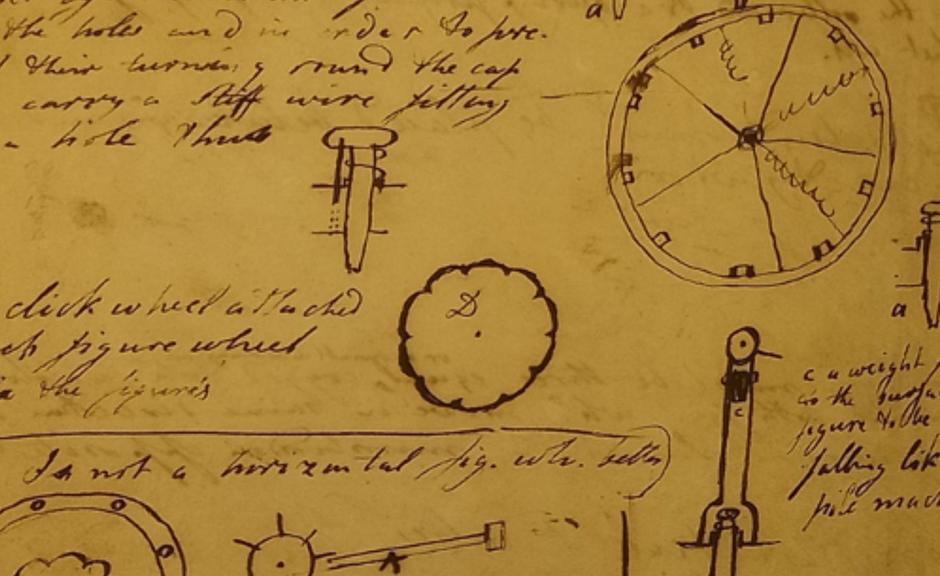 the holes and in order to pre-
their turning round the cap
carry a stiff wire fitting
a hole thus
a
click wheel attached
figure wheel
the figures
D
a
c a weight
figure to be
falling lik
pile mach
c
Is not a horizontal fig. wh. better